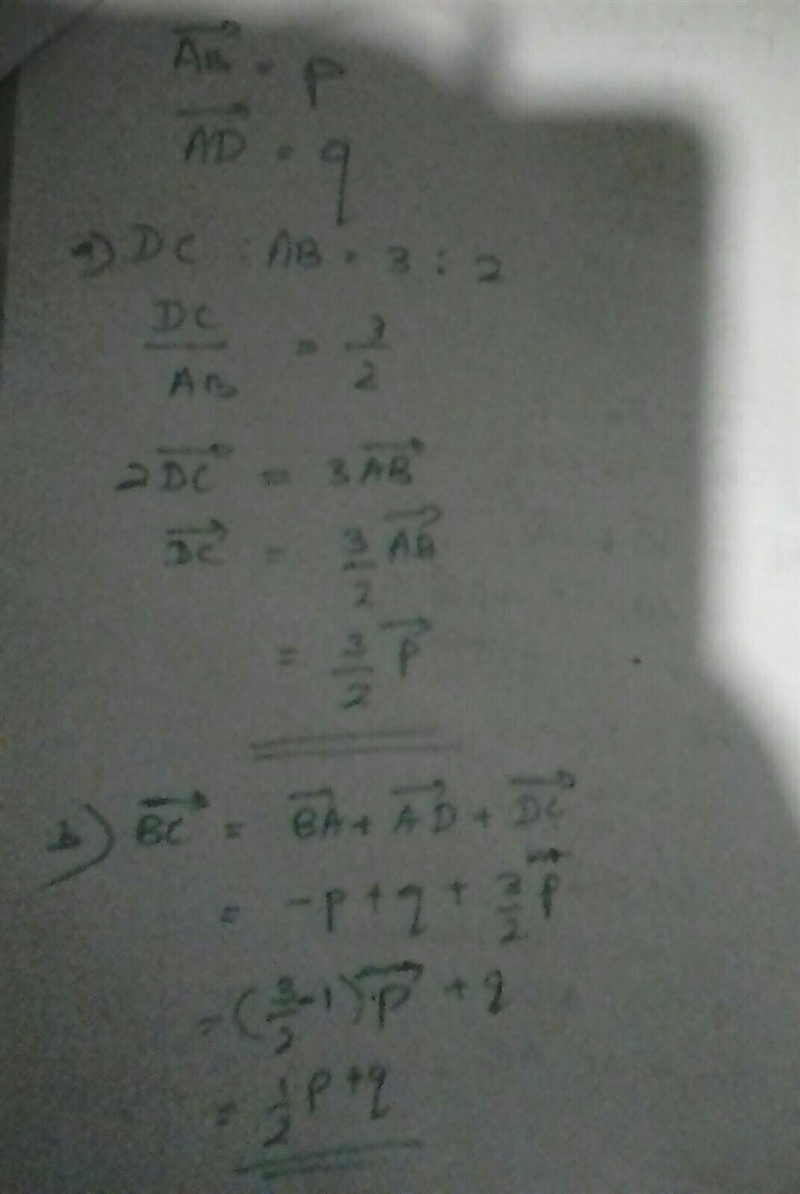 AB→ = p
AD→ = q
a) DC : AB = 3 : 2
DC/AB = 3/2
2DC→ = 3AB→
DC→ = 3/2 AB→
= 3/2 p→
b) BC→ = BA→ + AD→ + DC→
= -p + q + 3/2 p→
= (3/2 - 1)p→ + q
= 1/2 p + q